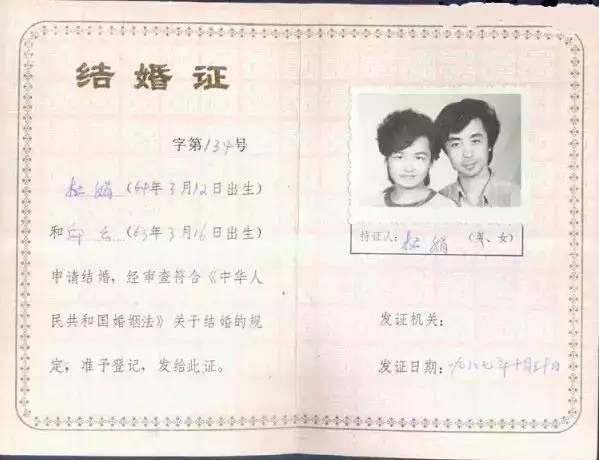 结婚证
字第134号
杜娟(64年3月12日出生)
和 云(63年3月16日出生)
申请结婚，经审查符合《中华人
民共和国婚姻法》关于结婚的规
定；准予登记，发给此证。
持证人：杜娟 (男、女)
发证机关：
发证日期：一九八七年十月三十日